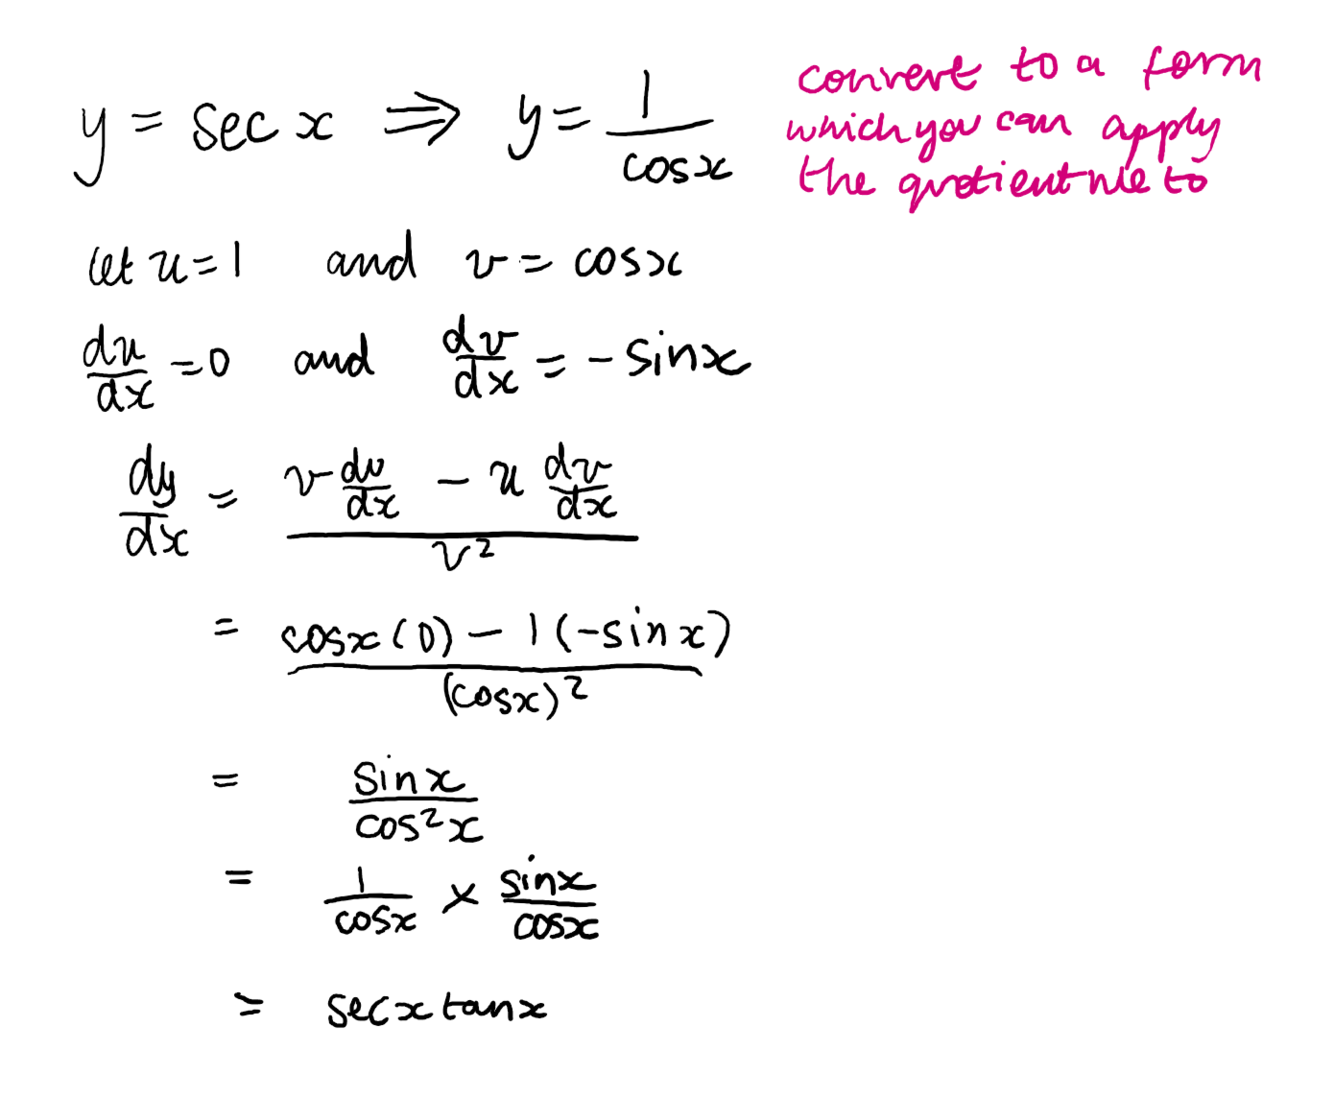 y = sec x ⇒ y = 1/cosx
convert to a form
which you can apply
the quotient rule to
let u = 1 and v = cosx
du/dx = 0 and dv/dx = - sinx
dy/dx = (v du/dx - u dv/dx)/v²
= (cosx(0) - 1(-sinx))/(cosx)²
= sinx/cos²x
= 1/cosx × sinx/cosx
= secxtanx